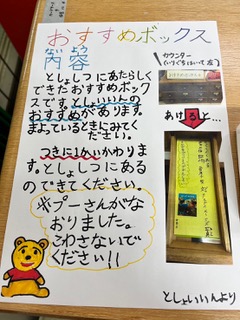 おすすめボックス
ないよう
内容
としょしつにあたらしく
できたおすすめボック
スです。としょいいんの
おすすめがあります。
まよっているときにみてく
ださい!!
つきに1かいかわりま
す。としょしつにある
のできてください。
※プーさんがな
おりました。
こわさないで
ください!!
カウンター
(いりぐちはいって左)
あけると…
としょいいんより